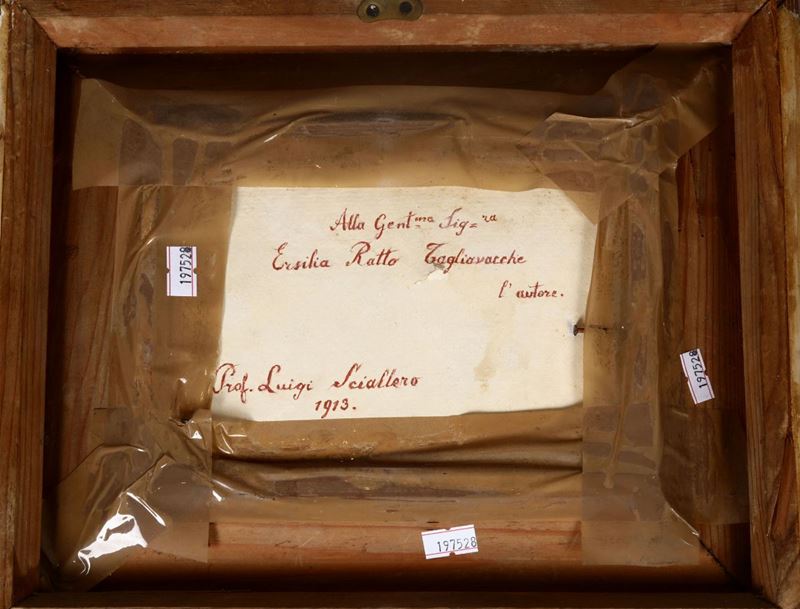 Alla Gent.ma Sig.ra
Ersilia Ratto Tagliavacche
l'autore.
Prof. Luigi Sciallero
1913.
197528
197528
197528